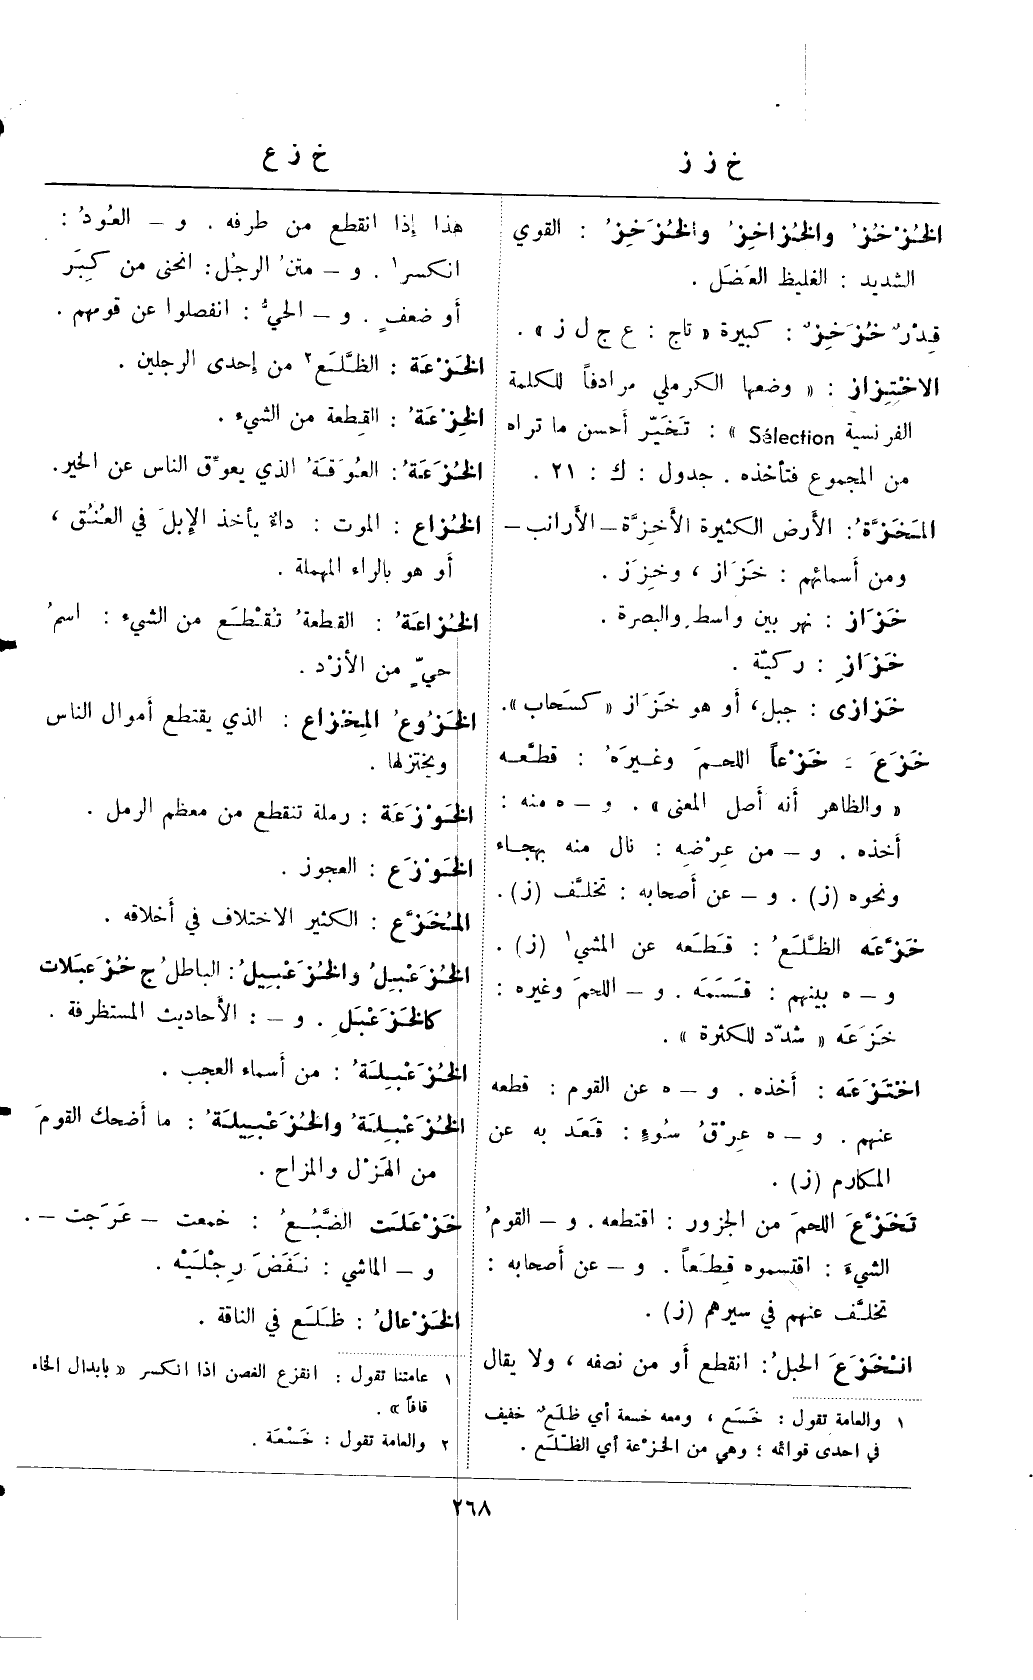 خ ز ز
الخُزْخُزُ والخُزاخِزُ والخُزَخِزُ : القوي
الشديد : الغليظ العَضَل .
قِدْرٌ خُزَخِزٌ : كبيرة « تاج : ع ج ل ز » .
الاخْتِزاز : « وضعها الكرملي مرادفاً للكلمة
الفرنسية Sélection » : تَخَيّر أحسن ما تراه
من المجموع فتأخذه . جدول : ك : ٢١ .
المَخَزَّةُ : الأرض الكثيرة الأخِزَّة – الأرانب –
ومن أسمائهم : خَزَاز ، وخِزَز .
خَزَاز : نهر بين واسط والبصرة .
خَزَازِ : ركيّة .
خَزَازى : جبل ، أو هو خَزَاز « كسَحاب » .
خَزَعَ ـَ خَزْعاً اللحمَ وغيرَهُ : قطَّعه
« والظاهر أنه أصل المعنى » . و – ه منه :
أخذه . و – من عِرْضِه : نال منه بهجاء
ونحوه (ز) . و – عن أصحابه : تخلَّف (ز) .
خَزَّعَه الظَّلَعُ : قَطَعه عن المشي١ (ز) .
و – ه بينهم : قَسَمَه . و – اللحمَ وغيره :
خَزَعَه « شدّد للكثرة » .
اخْتَزَعَه : أخذه . و – ه عن القوم : قطعه
عنهم . و – ه عِرْقُ سُوءٍ : قَعَد به عن
المكارم (ز) .
تَخَزَّعَ اللحمَ من الجزور : اقتطعه . و – القومُ
الشيءَ : اقتسموه قِطَعاً . و – عن أصحابه :
تخلَّف عنهم في سيرهم (ز) .
انْخَزَعَ الحبلُ : انقطع أو من نصفه ، ولا يقال
١ والعامة تقول : خَسَع ، ومعه خسعة أي ظَلَعٌ خفيف
في احدى قوائمه ؛ وهي من الخزْعة أي الظَّلَع .
خ ز ع
هذا إذا انقطع من طرفه . و – العُودُ :
انكسر١ . و – متنُ الرجُل : انحنى من كِبَرٍ
أو ضعفٍ . و – الحيُّ : انفصلوا عن قومهم .
الخَزْعَة : الظَّلَع٢ من إحدى الرجلين .
الخِزْعَةُ : القِطعة من الشيء .
الخُزَعَةُ : العُوَقَةُ الذي يعوّق الناس عن الخير .
الخُزاع : الموت : داءٌ يأخذ الإبلَ في العُنُق ،
أو هو بالراء المهملة .
الخُزاعَةُ : القطعةُ تُقْطَع من الشيء : اسمُ
حيٍّ من الأزْد .
الخَزُوعُ المِخْزاع : الذي يقتطع أموال الناس
ويختزلها .
الخَوْزَعَة : رملة تنقطع من معظم الرمل .
الخَوْزَع : العجوز .
المُخَزَّع : الكثير الاختلاف في أخلاقه .
الخُزَعْبِلُ والخُزَعْبِيلُ : الباطلُ ج خُزَعبَلات
كالخَزَعْبَلِ . و – : الأحاديث المستظرفة .
الخُزَعْبِلَةُ : من أسماء العجب .
الخُزَعْبِلَةُ والخُزَعْبِيلَةُ : ما أضحك القومَ
من الهَزْل والمزاح .
خَزْعَلَت الضَّبُعُ : خمعت – عَرَجت – .
و – الماشي : نَفَضَ رِجْلَيْه .
الخَزْعالُ : ظَلَع في الناقة .
١ عامتنا تقول : انقزع الغصن اذا انكسر « بابدال الخاء
قافاً » .
٢ والعامة تقول : خَسْعَة .
٢٦٨